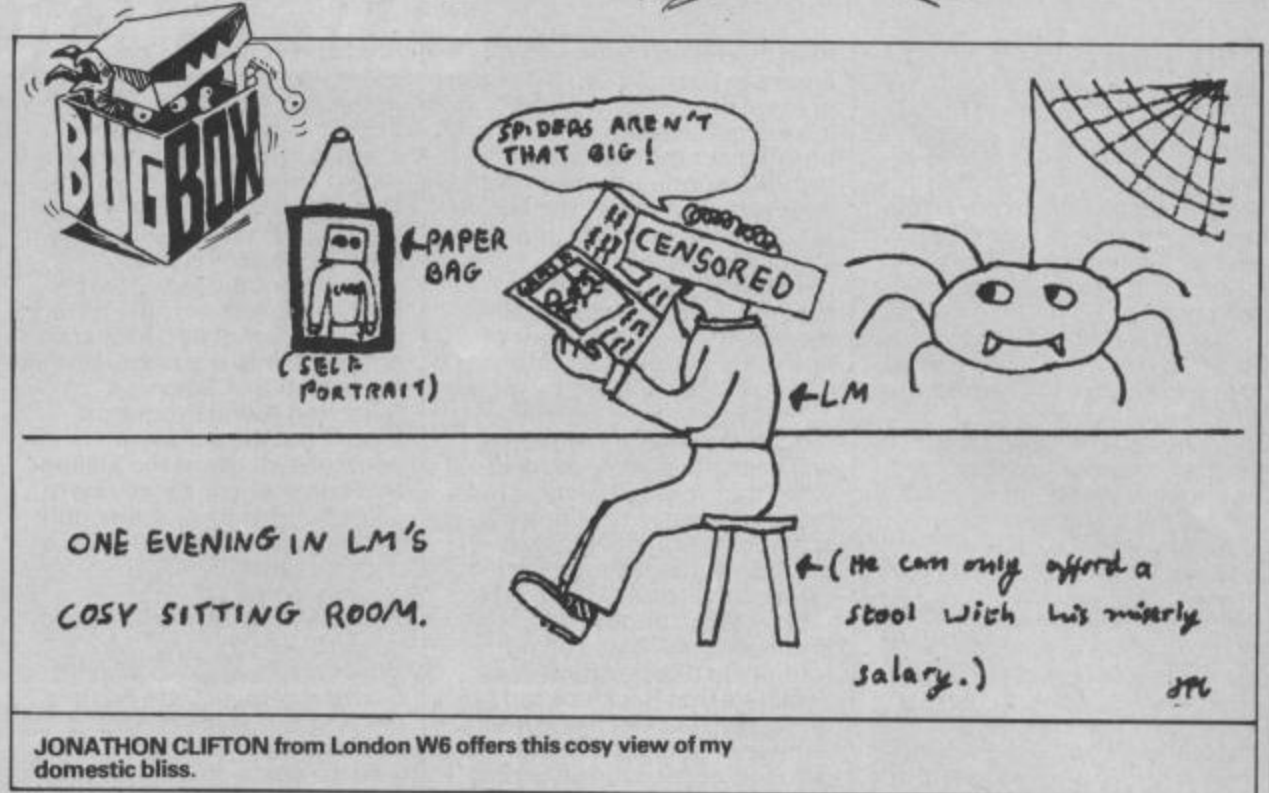 BUGBOX
SPIDERS AREN'T
THAT BIG!
CENSORED
PAPER
BAG
(SELF
PORTRAIT)
LM
ONE EVENING IN LM'S
COSY SITTING ROOM.
(He can only afford a
stool with his miserly
salary.)
JONATHON CLIFTON from London W6 offers this cosy view of my
domestic bliss.